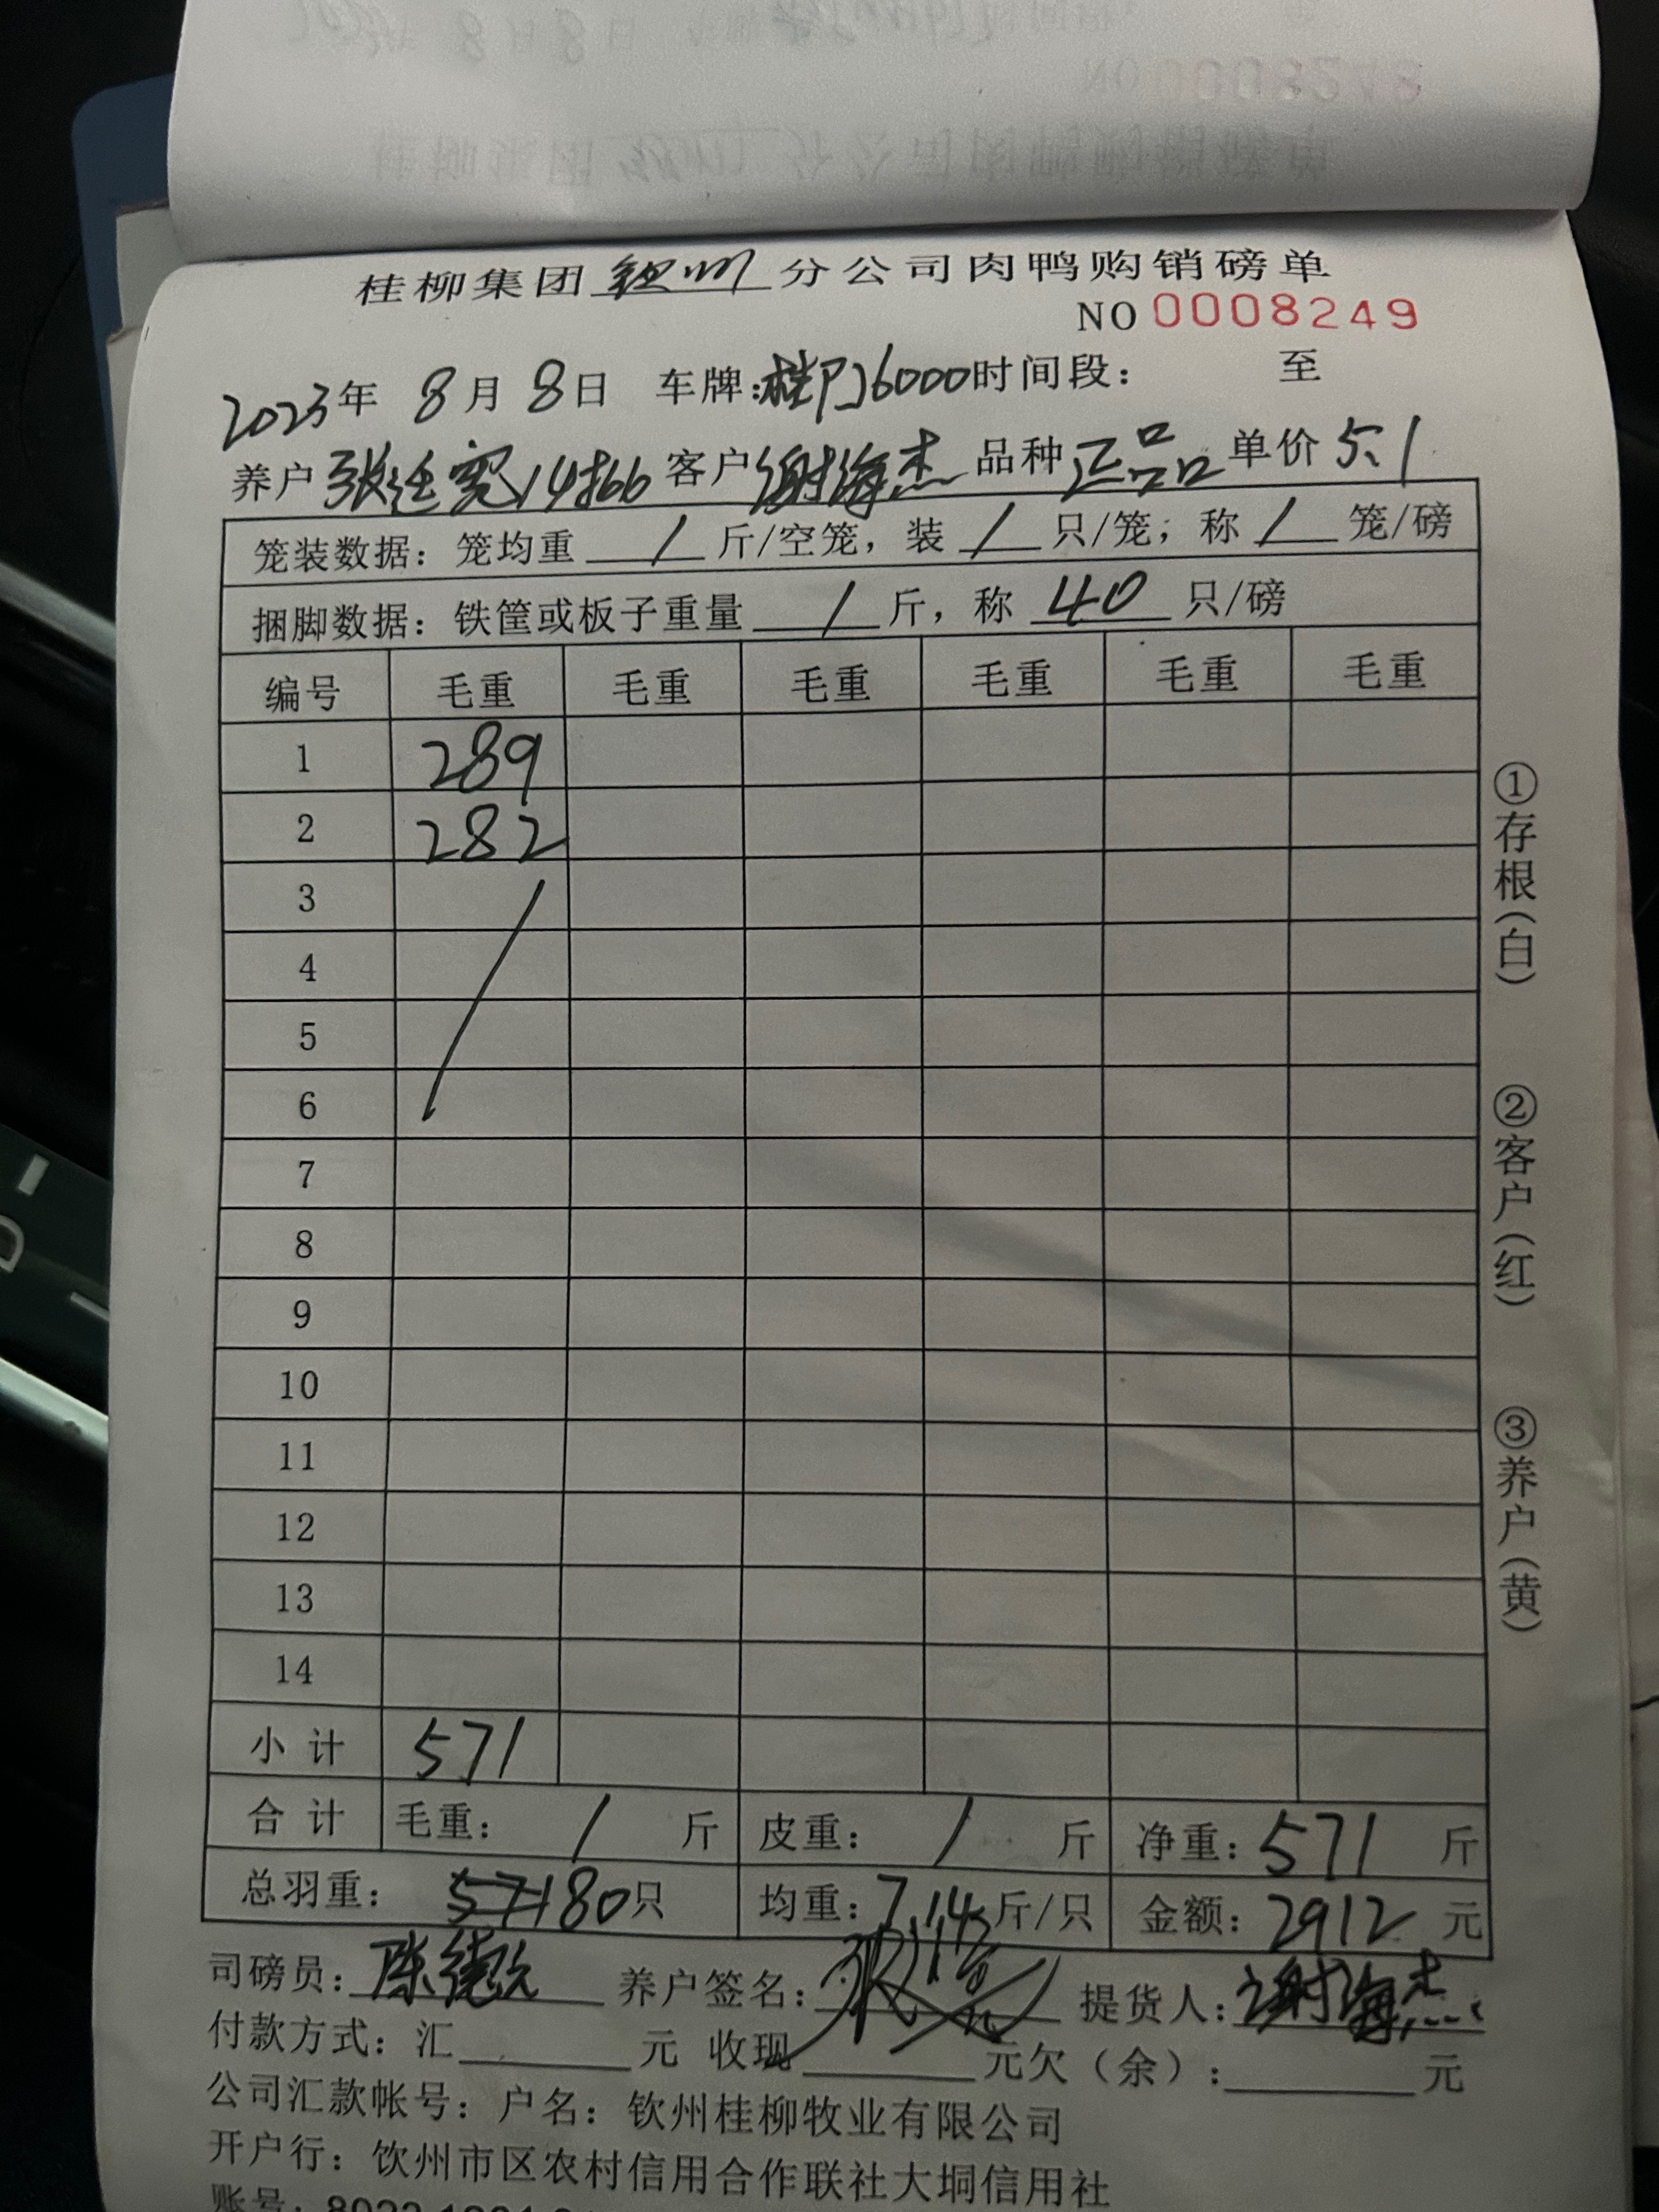 桂柳集团钦州分公司肉鸭购销磅单
NO 0008249
2023年 8月8日 车牌:桂 J6000时间段: 至
养户 张 宽14批66 客户 谢海杰 品种 正品 单价 5.1
笼装数据: 笼均重 / 斤/空笼, 装 / 只/笼; 称 / 笼/磅
捆脚数据: 铁筐或板子重量 / 斤, 称 40 只/磅
编号 毛重 毛重 毛重 毛重 毛重 毛重
1 289
2 282
3
4
5
6
7
8
9
10
11
12
13
14
小计 571
合计 毛重: / 斤 皮重: / 斤 净重: 571 斤
总羽重: 571 80只 均重: 7.14斤/只 金额: 2912 元
司磅员: 陈德 养户签名: 张 提货人: 谢海杰
付款方式: 汇 元 收现 元欠(余): 元
公司汇款帐号: 户名: 钦州桂柳牧业有限公司
开户行: 饮州市区农村信用合作联社大垌信用社
账号:
①存根(白)
②客户(红)
③养户(黄)